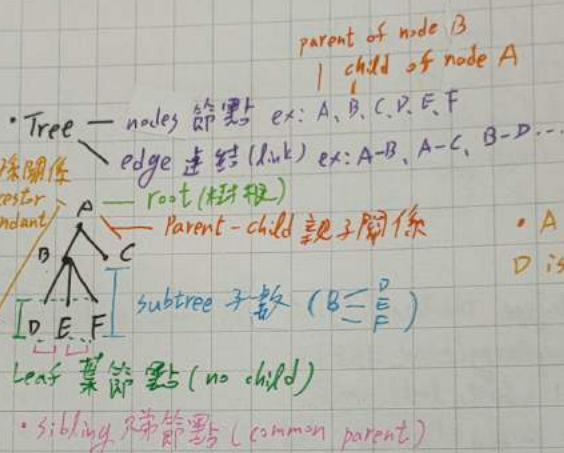 parent of node B
child of node A
•Tree — nodes 節點 ex: A、B、C、D、E、F
edge 連結(link) ex: A-B、A-C、B-D...
係關係
A — root(樹根)
Parent-child 親子關係
B C
• A
D is
subtree 子數 (B D E F)
D E F
Leaf 葉節點(no child)
•sibling 兄弟節點(common parent)